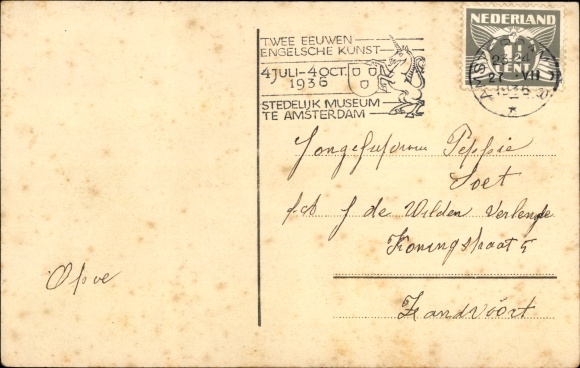 TWEE EEUWEN
ENGELSCHE KUNST
4 JULI-4 OCT.
1936
STEDELIJK MUSEUM
TE AMSTERDAM
NEDERLAND
1½
CENT
27 VII
1936
Peppie
Soet
J de Wilden Verlengde
Koningstraat 5
Zandvóórt